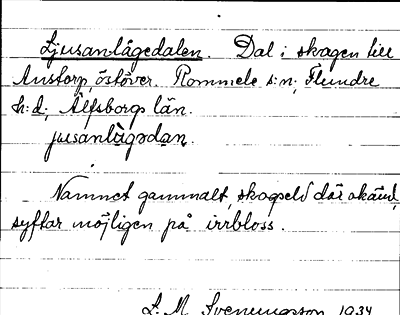 Ljusanlågedalen. Dal i skogen till
Anstorp, östöver. Rommele s:n, Flundre
h:d, Älfsborgs län.
jusanlågədan.
Namnet gammalt, skogseld där okänd,
syftar möjligen på irrbloss.
L. M. Svenungsson 1934